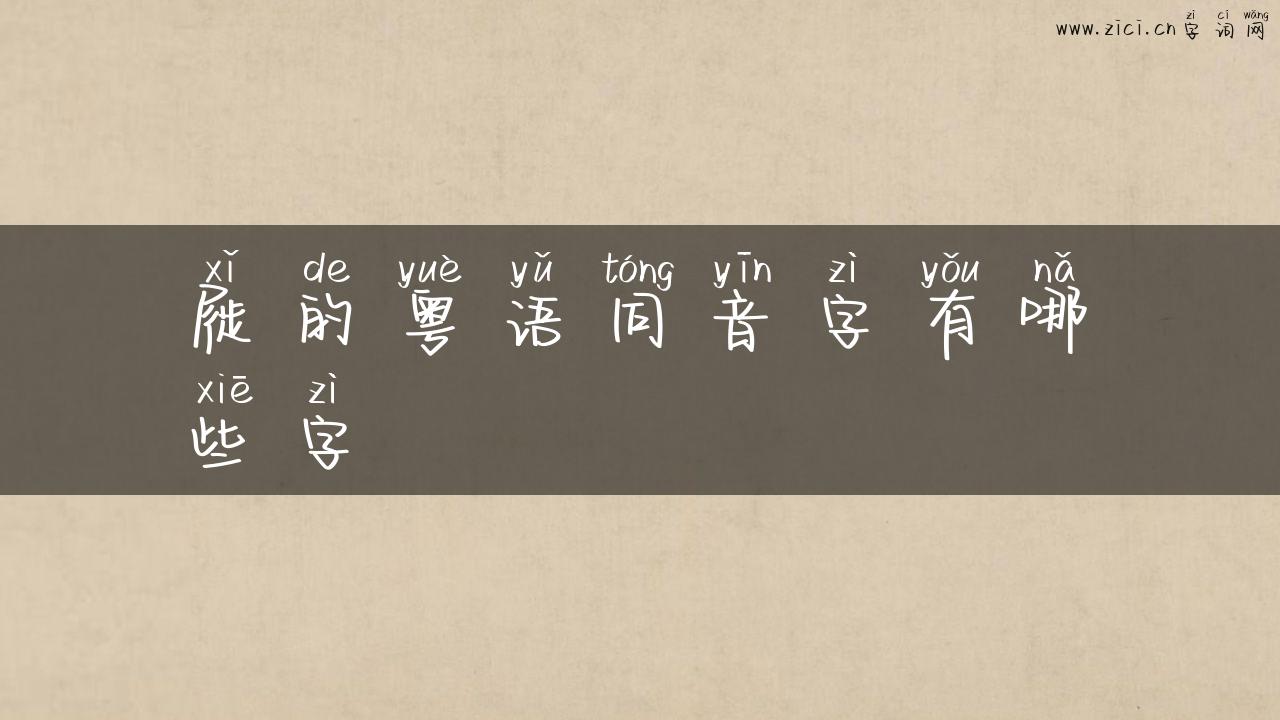 zì cí wǎng
www.zici.cn 字词网
xǐ de yuè yǔ tóng yīn zì yǒu nǎ
屣的粤语同音字有哪
xiē zì
些字